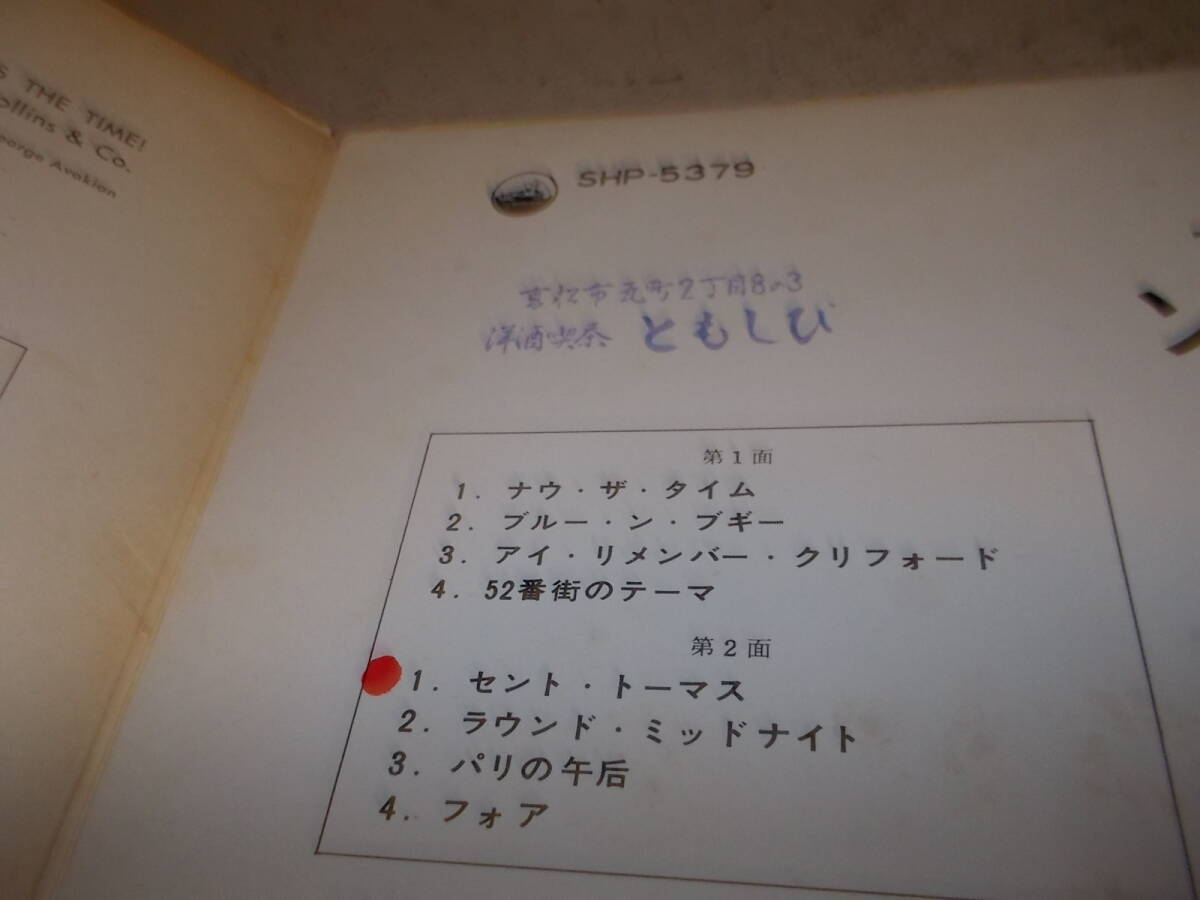 S THE TIME!
ollins & Co.
eorge Avakian
SHP-5379
市元町2丁目8の3
洋酒喫茶 ともしび
第1面
1. ナウ・ザ・タイム
2. ブルー・ン・ブギー
3. アイ・リメンバー・クリフォード
4. 52番街のテーマ
第2面
1. セント・トーマス
2. ラウンド・ミッドナイト
3. パリの午后
4. フォア